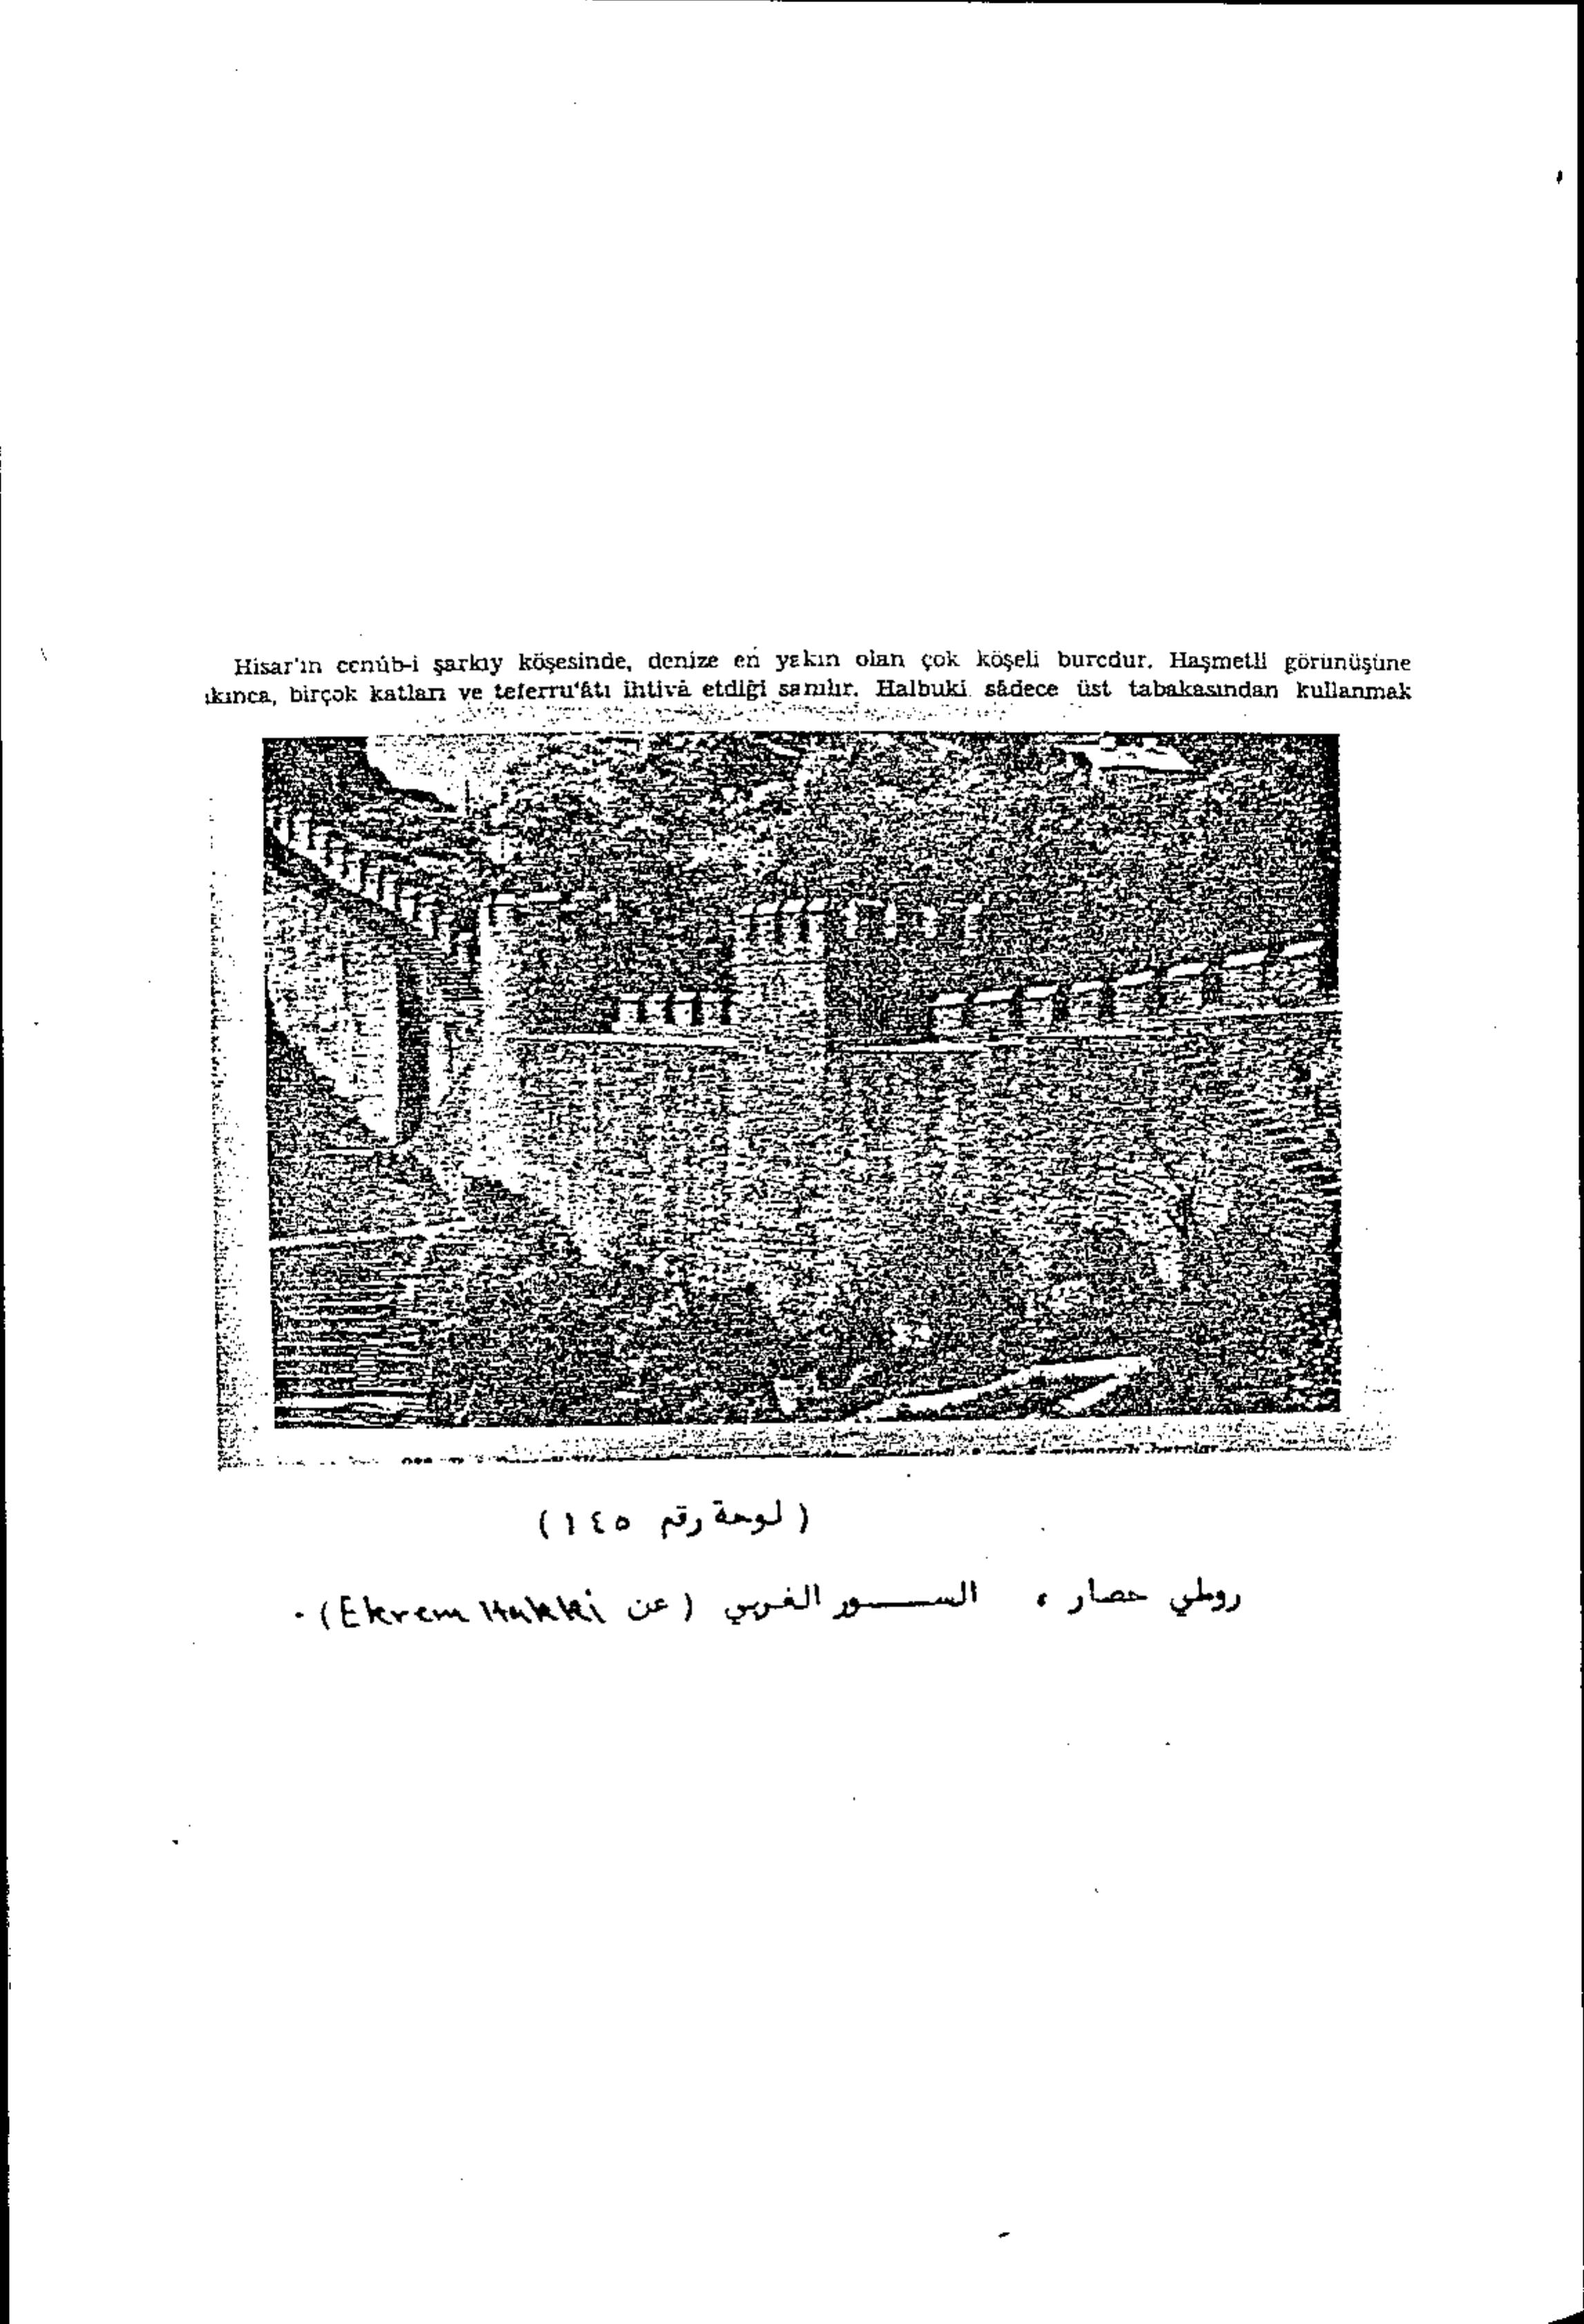 Hisar'ın cenûb-i şarkıy köşesinde, denize en yakın olan çok köşeli burcdur. Haşmetli görünüşüne
ıkınca, birçok katları ve teferru'âtı ihtivâ etdiği sanılır. Halbuki sâdece üst tabakasından kullanmak
burclar
( لوحة رقم ١٤٥ )
روملي حصار ، الســـور الغربي ( عن Ekrem Hakki ) .